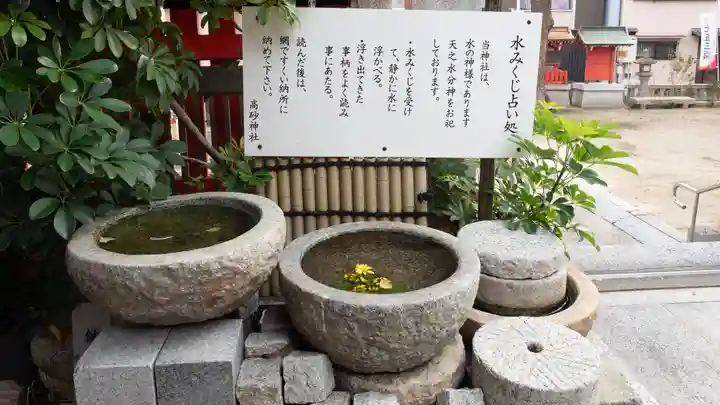 水みくじ占い処
当神社は、
水の神様であります
天之水分神をお祀
しております。
・水みくじを受け
て、静かに水に
浮かべる。
・浮き出てきた
事柄をよく読み
事にあたる。
読んだ後は、
網ですくい納所に
納めて下さい。
高砂神社